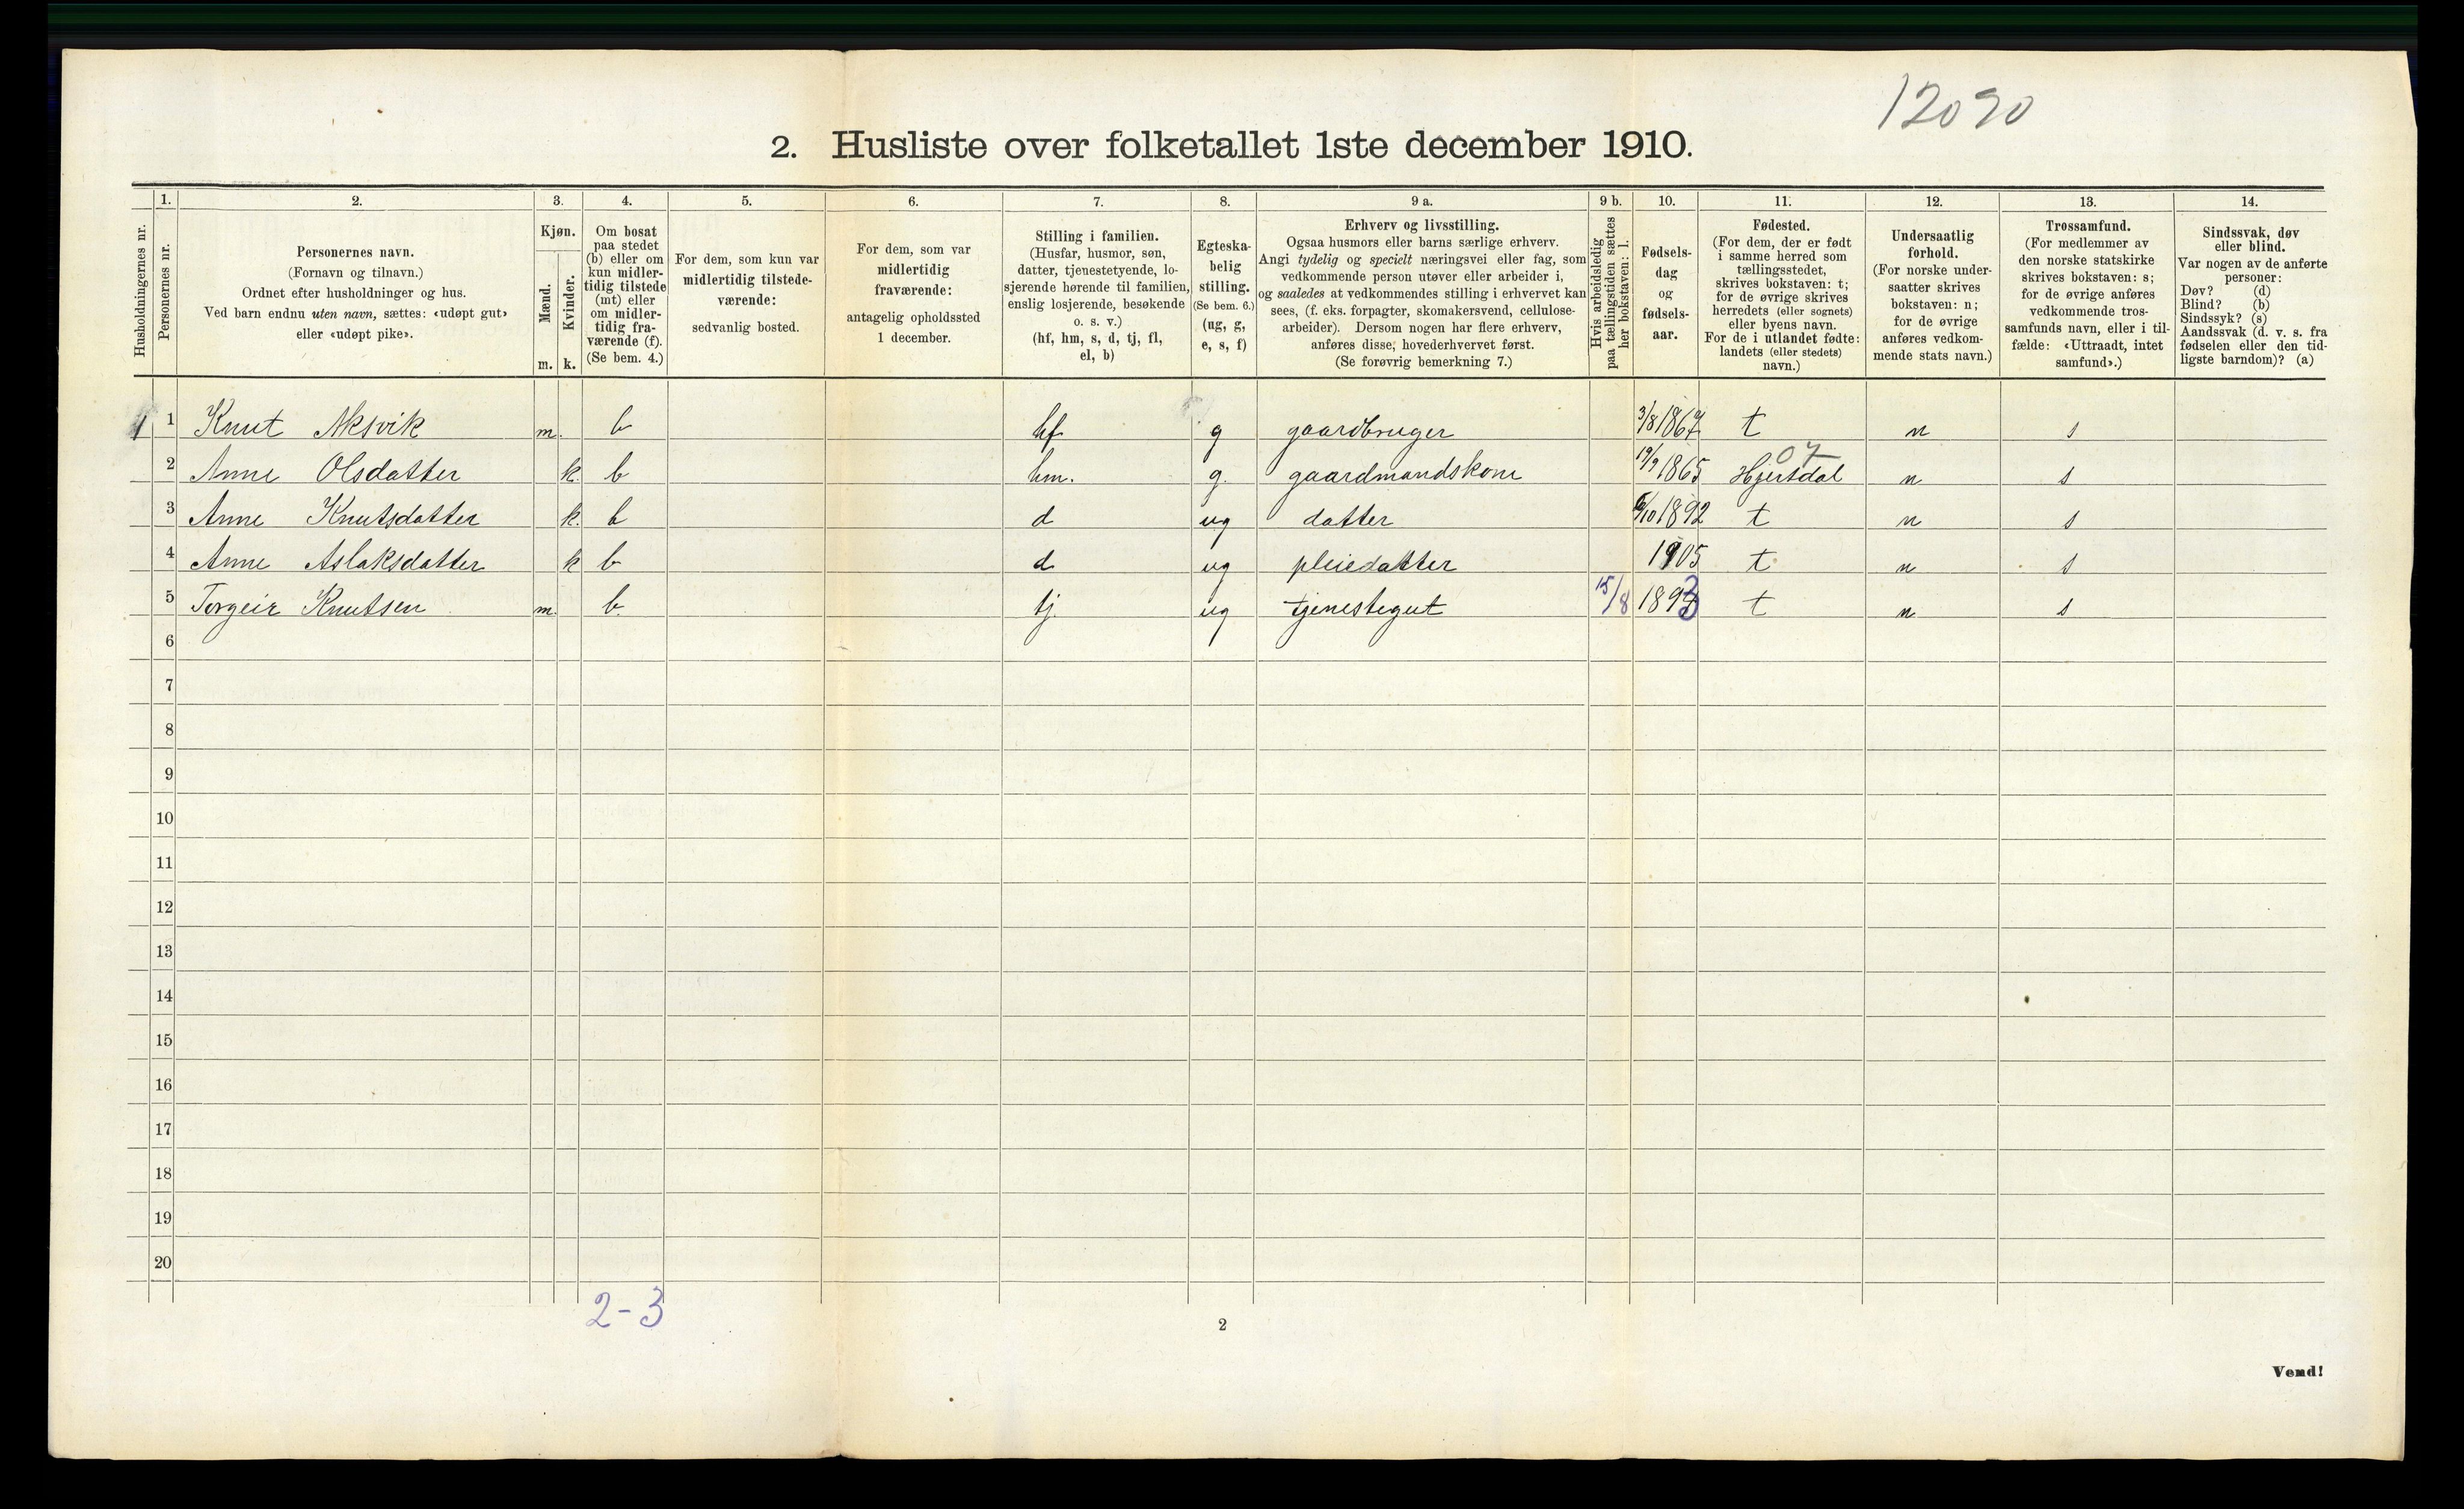 12090
2. Husliste over folketallet 1ste december 1910.
Husholdningernes nr.
1.
Personernes nr.
2.
Personernes navn.
(Fornavn og tilnavn.)
Ordnet efter husholdninger og hus.
Ved barn endnu uten navn, sættes: «udøpt gut»
eller «udøpt pike».
3.
Kjøn.
Mænd.
Kvinder.
m. k.
4.
Om bosat
paa stedet
(b) eller om
kun midler-
tidig tilstede
(mt) eller
om midler-
tidig fra-
værende (f).
(Se bem. 4.)
5.
For dem, som kun var
midlertidig tilstede-
værende:
sedvanlig bosted.
6.
For dem, som var
midlertidig
fraværende:
antagelig opholdssted
1 december.
7.
Stilling i familien.
(Husfar, husmor, søn,
datter, tjenestetyende, lo-
sjerende hørende til familien,
enslig losjerende, besøkende
o. s. v.)
(hf, hm, s, d, tj, fl,
el, b)
8.
Egteska-
belig
stilling.
(Se bem. 6.)
(ug, g,
e, s, f)
9 a.
Erhverv og livsstilling.
Ogsaa husmors eller barns særlige erhverv.
Angi tydelig og specielt næringsvei eller fag, som
vedkommende person utøver eller arbeider i,
og saaledes at vedkommendes stilling i erhvervet kan
sees, (f. eks. forpagter, skomakersvend, cellulose-
arbeider). Dersom nogen har flere erhverv,
anføres disse, hovederhvervet først.
(Se forøvrig bemerkning 7.)
9 b.
Hvis arbeidsledig
paa tællingstiden sættes
her bokstaven: l.
10.
Fødsels-
dag
og
fødsels-
aar.
11.
Fødested.
(For dem, der er født
i samme herred som
tællingsstedet,
skrives bokstaven: t;
for de øvrige skrives
herredets (eller sognets)
eller byens navn.
For de i utlandet fødte:
landets (eller stedets)
navn.)
12.
Undersaatlig
forhold.
(For norske under-
saatter skrives
bokstaven: n;
for de øvrige
anføres vedkom-
mende stats navn.)
13.
Trossamfund.
(For medlemmer av
den norske statskirke
skrives bokstaven: s;
for de øvrige anføres
vedkommende tros-
samfunds navn, eller i til-
fælde: «Uttraadt, intet
samfund».)
14.
Sindssvak, døv
eller blind.
Var nogen av de anførte
personer:
Døv? (d)
Blind? (b)
Sindssyk? (s)
Aandssvak (d. v. s. fra
fødselen eller den tid-
ligste barndom)? (a)
1 1 Knut Aksvik m. b hf g gaardbruger 3/8 1867 t n s
07
2 Anne Olsdatter k. b hm. g. gaardmandskone 19/9 1865 Hjertdal n s
3 Anne Knutsdatter k. b d ug datter 6/10 1892 t n s
4 Anne Aslaksdatter k b d ug pleiedatter 1905 t n s
5 Torgeir Knutsen m. b. tj. ug tjenestegut 15/8 1893 t n s
6
7
8
9
10
11
12
13
14
15
16
17
18
19
20
2-3
2
Vend!